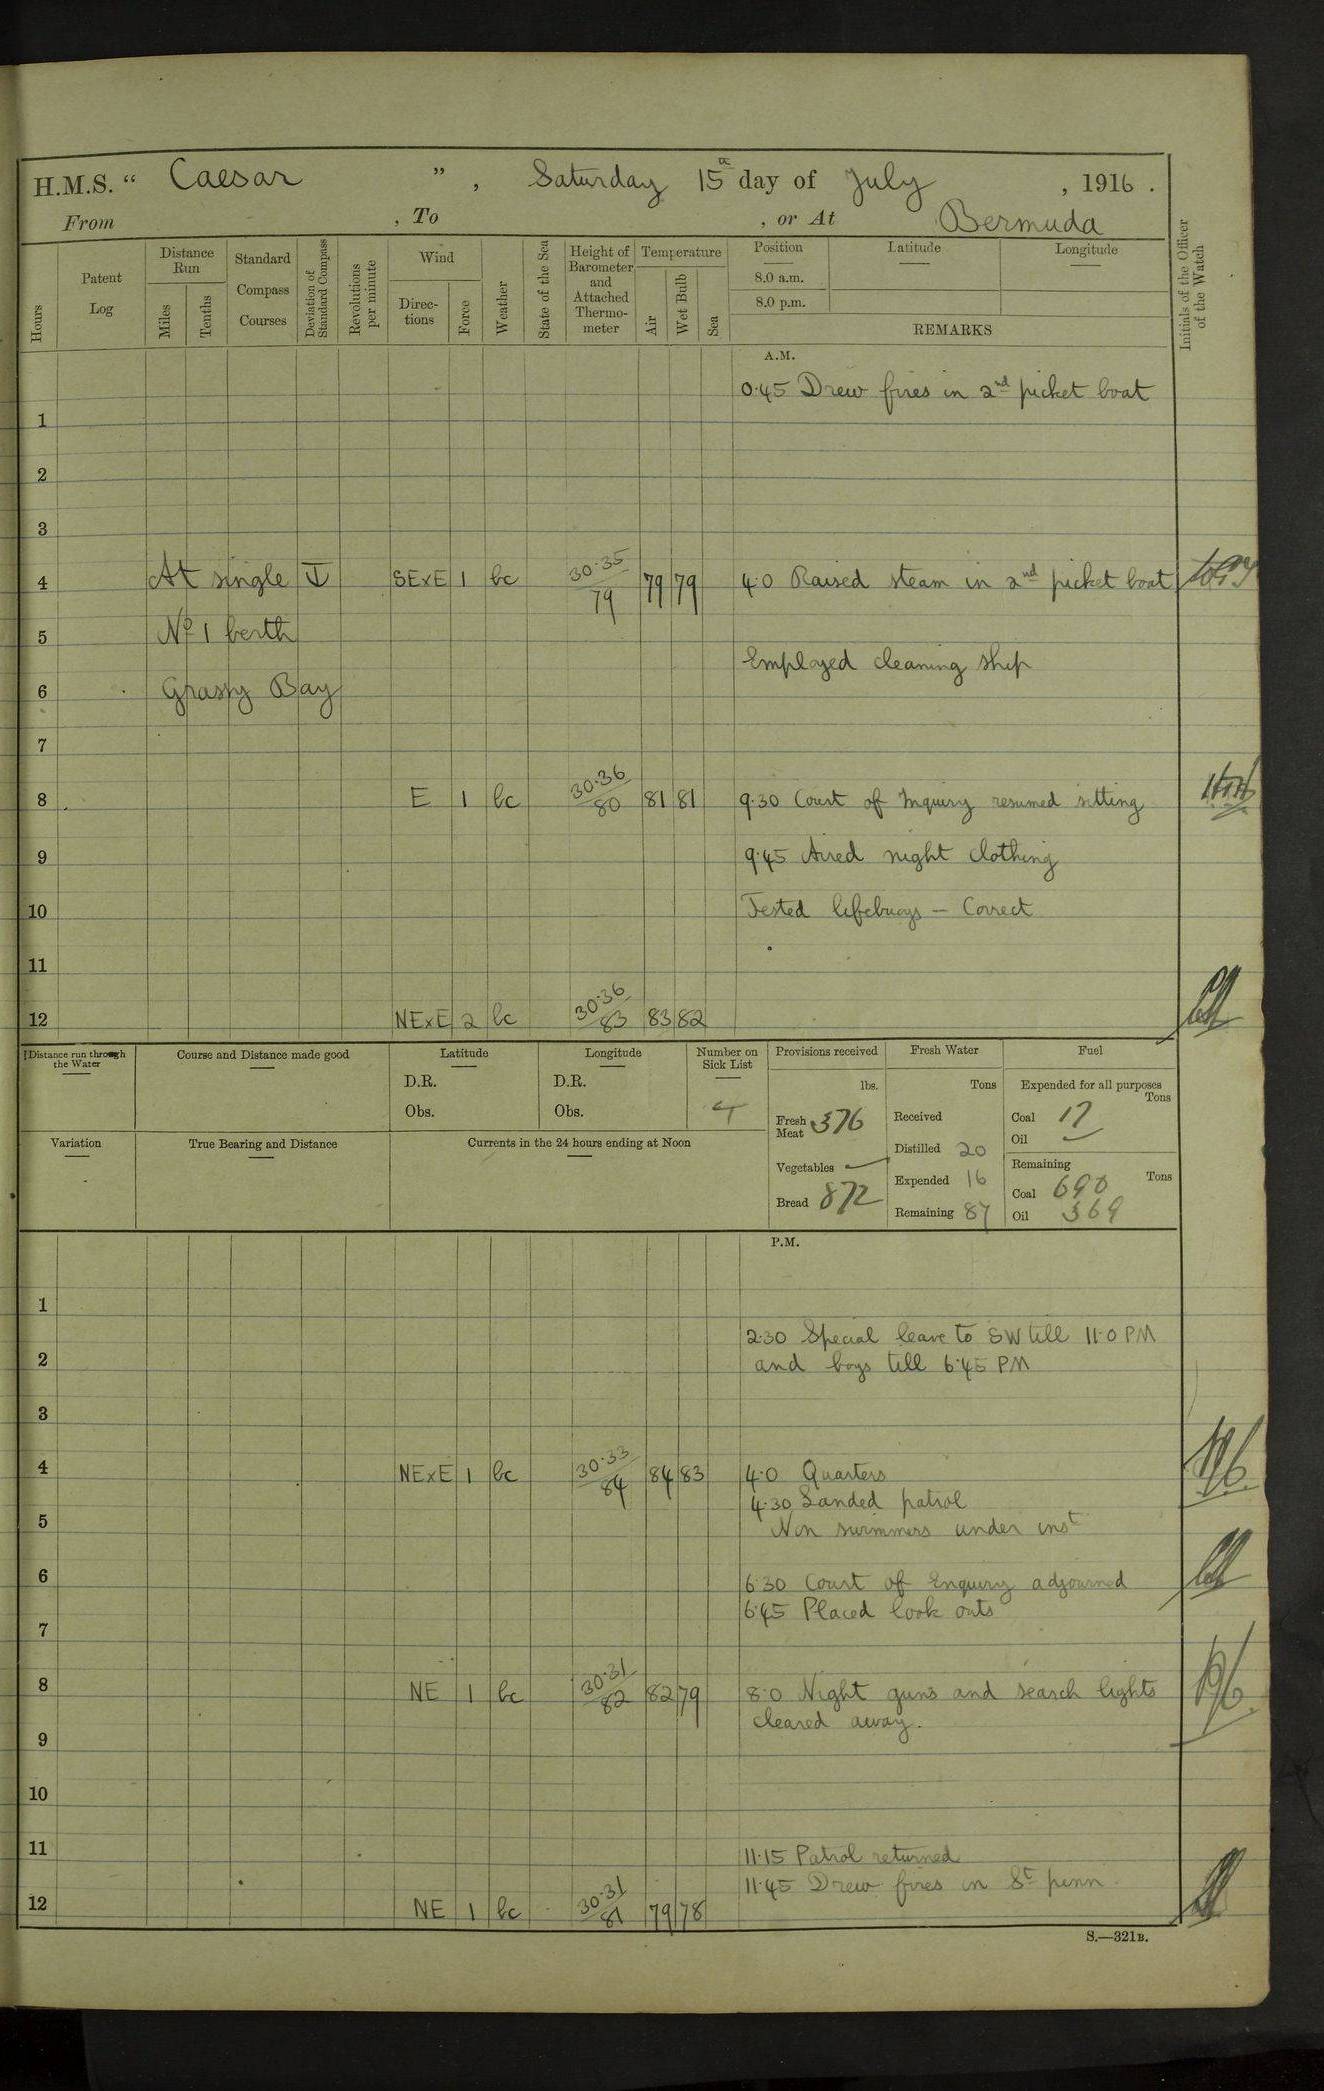 H.M.S. " Caesar ", Saturday 15th day of July, 1916.
From , To , or At Bermuda
Hours
Patent Log
Distance Run
Miles
Tenths
Standard Compass Courses
Deviation of Standard Compass
Revolutions per minute
Wind
Directions
Force
Weather
State of the Sea
Height of Barometer and Attached Thermometer
Temperature
Air
Wet Bulb
Sea
Position
8.0 a.m.
8.0 p.m.
Latitude
Longitude
REMARKS
Initials of the Officer of the Watch
A.M.
0.45 Drew fires in 2nd picket boat
1
2
3
4 At single SExE 1 bc 30.35/79 79 79 4.0 Raised steam in 2nd picket boat
5 No 1 berth
Employed cleaning ship
6 Grassy Bay
7
8 E 1 bc 30.36/80 81 81 9.30 Court of Inquiry resumed sitting
9 9.45 Aired night clothing
10 Tested lifebuoys – Correct
11
12 NExE 2 bc 30.36/83 83 82
Distance run through the Water
Course and Distance made good
Latitude
D.R.
Obs.
Longitude
D.R.
Obs.
Number on Sick List
4
Provisions received
lbs.
Fresh Meat 376
Vegetables
Bread 872
Fresh Water
Tons
Received
Distilled 20
Expended 16
Remaining 87
Fuel
Expended for all purposes
Tons
Coal 17
Oil
Remaining
Tons
Coal 690
Oil 369
Variation
True Bearing and Distance
Currents in the 24 hours ending at Noon
P.M.
1
2.30 Special leave to SW till 11.0 PM
2 and boys till 6.45 PM
3
4 NExE 1 bc 30.33/84 84 83 4.0 Quarters
4.30 Landed patrol
5 Non swimmers under inst
6 6.30 Court of Enquiry adjourned
6.45 Placed look outs
7
8 NE 1 bc 30.31/82 82 79 8.0 Night guns and search lights
cleared away.
9
10
11 11.15 Patrol returned
11.45 Drew fires in St pinn
12 NE 1 bc 30.31/81 79 78
S.—321B.